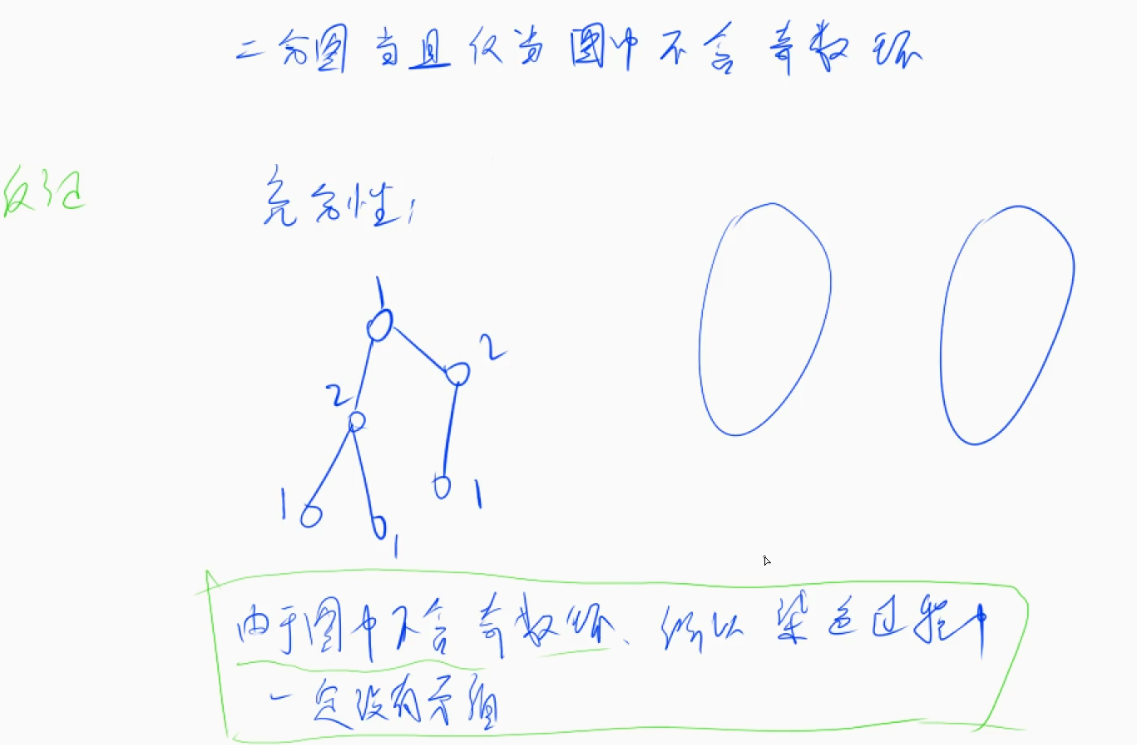 二分图当且仅当图中不含奇数环
反证
充分性:
1
2
2
1
1
1
由于图中不含奇数环、所以染色过程中
一定没有矛盾